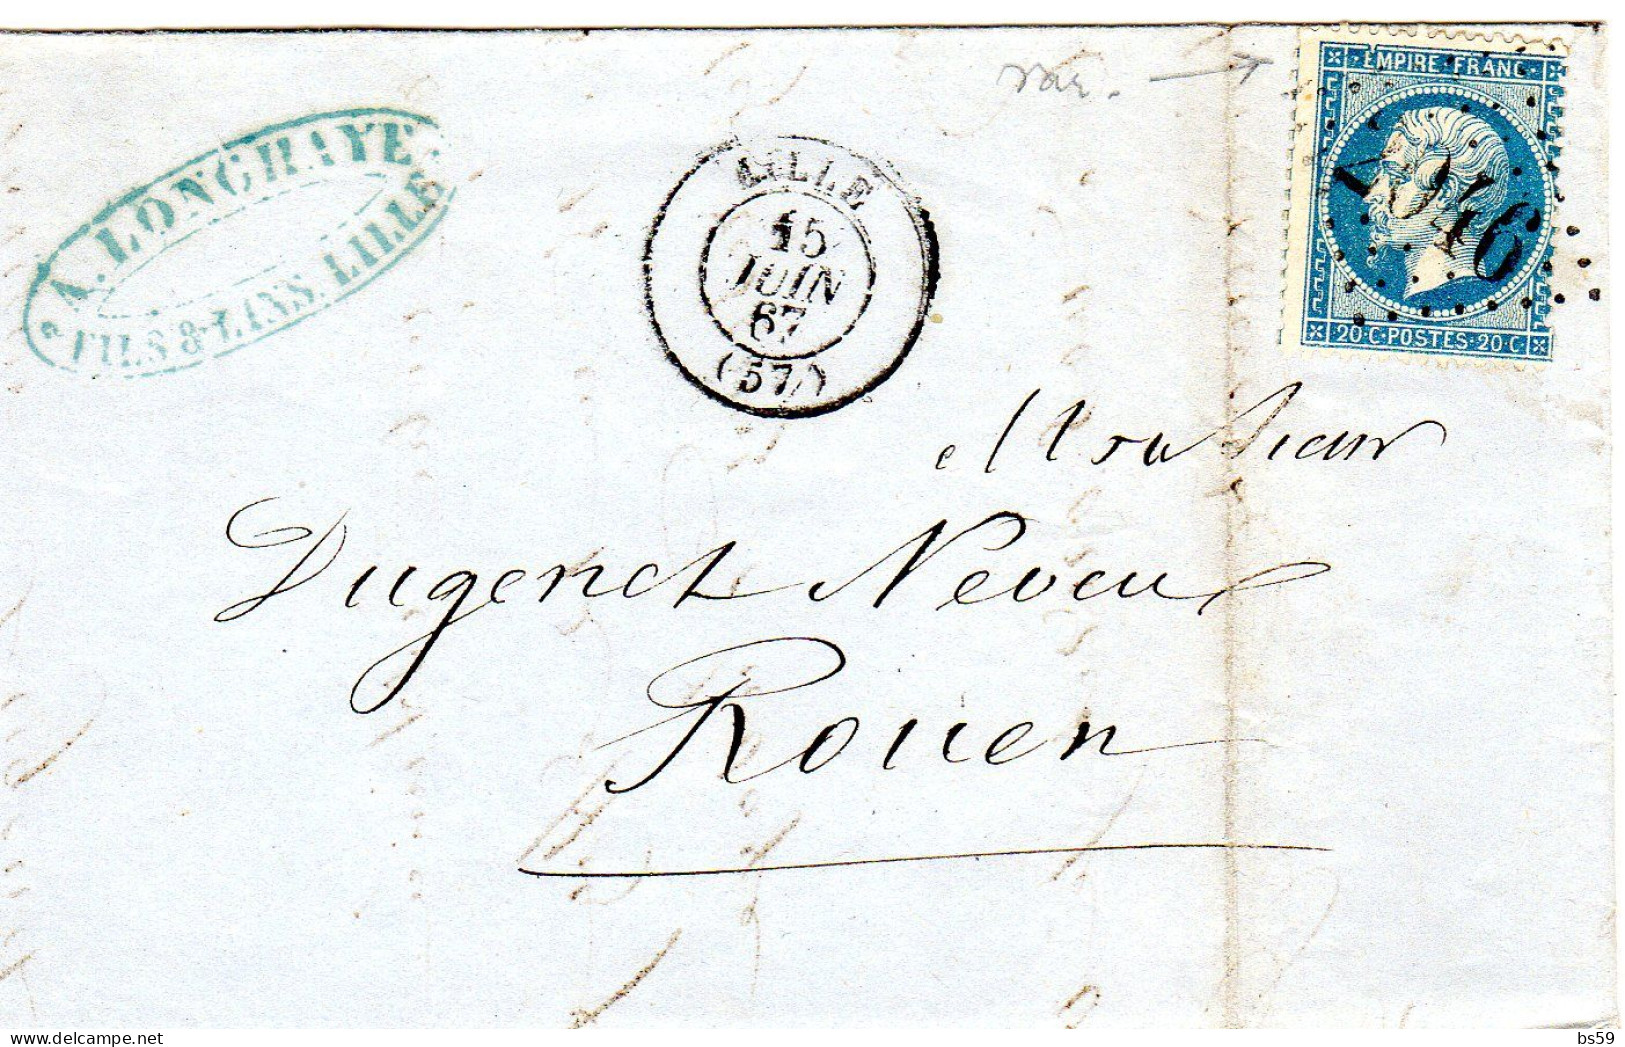 A. LONGHAYE
FILS & LIN^S. LILLE
LILLE
15
JUIN
67
(57)
var.
EMPIRE FRANC
2046
20·C·POSTES·20·C
Monsieur
Dugenet Neveu
Rouen
delcampe.net
bs59